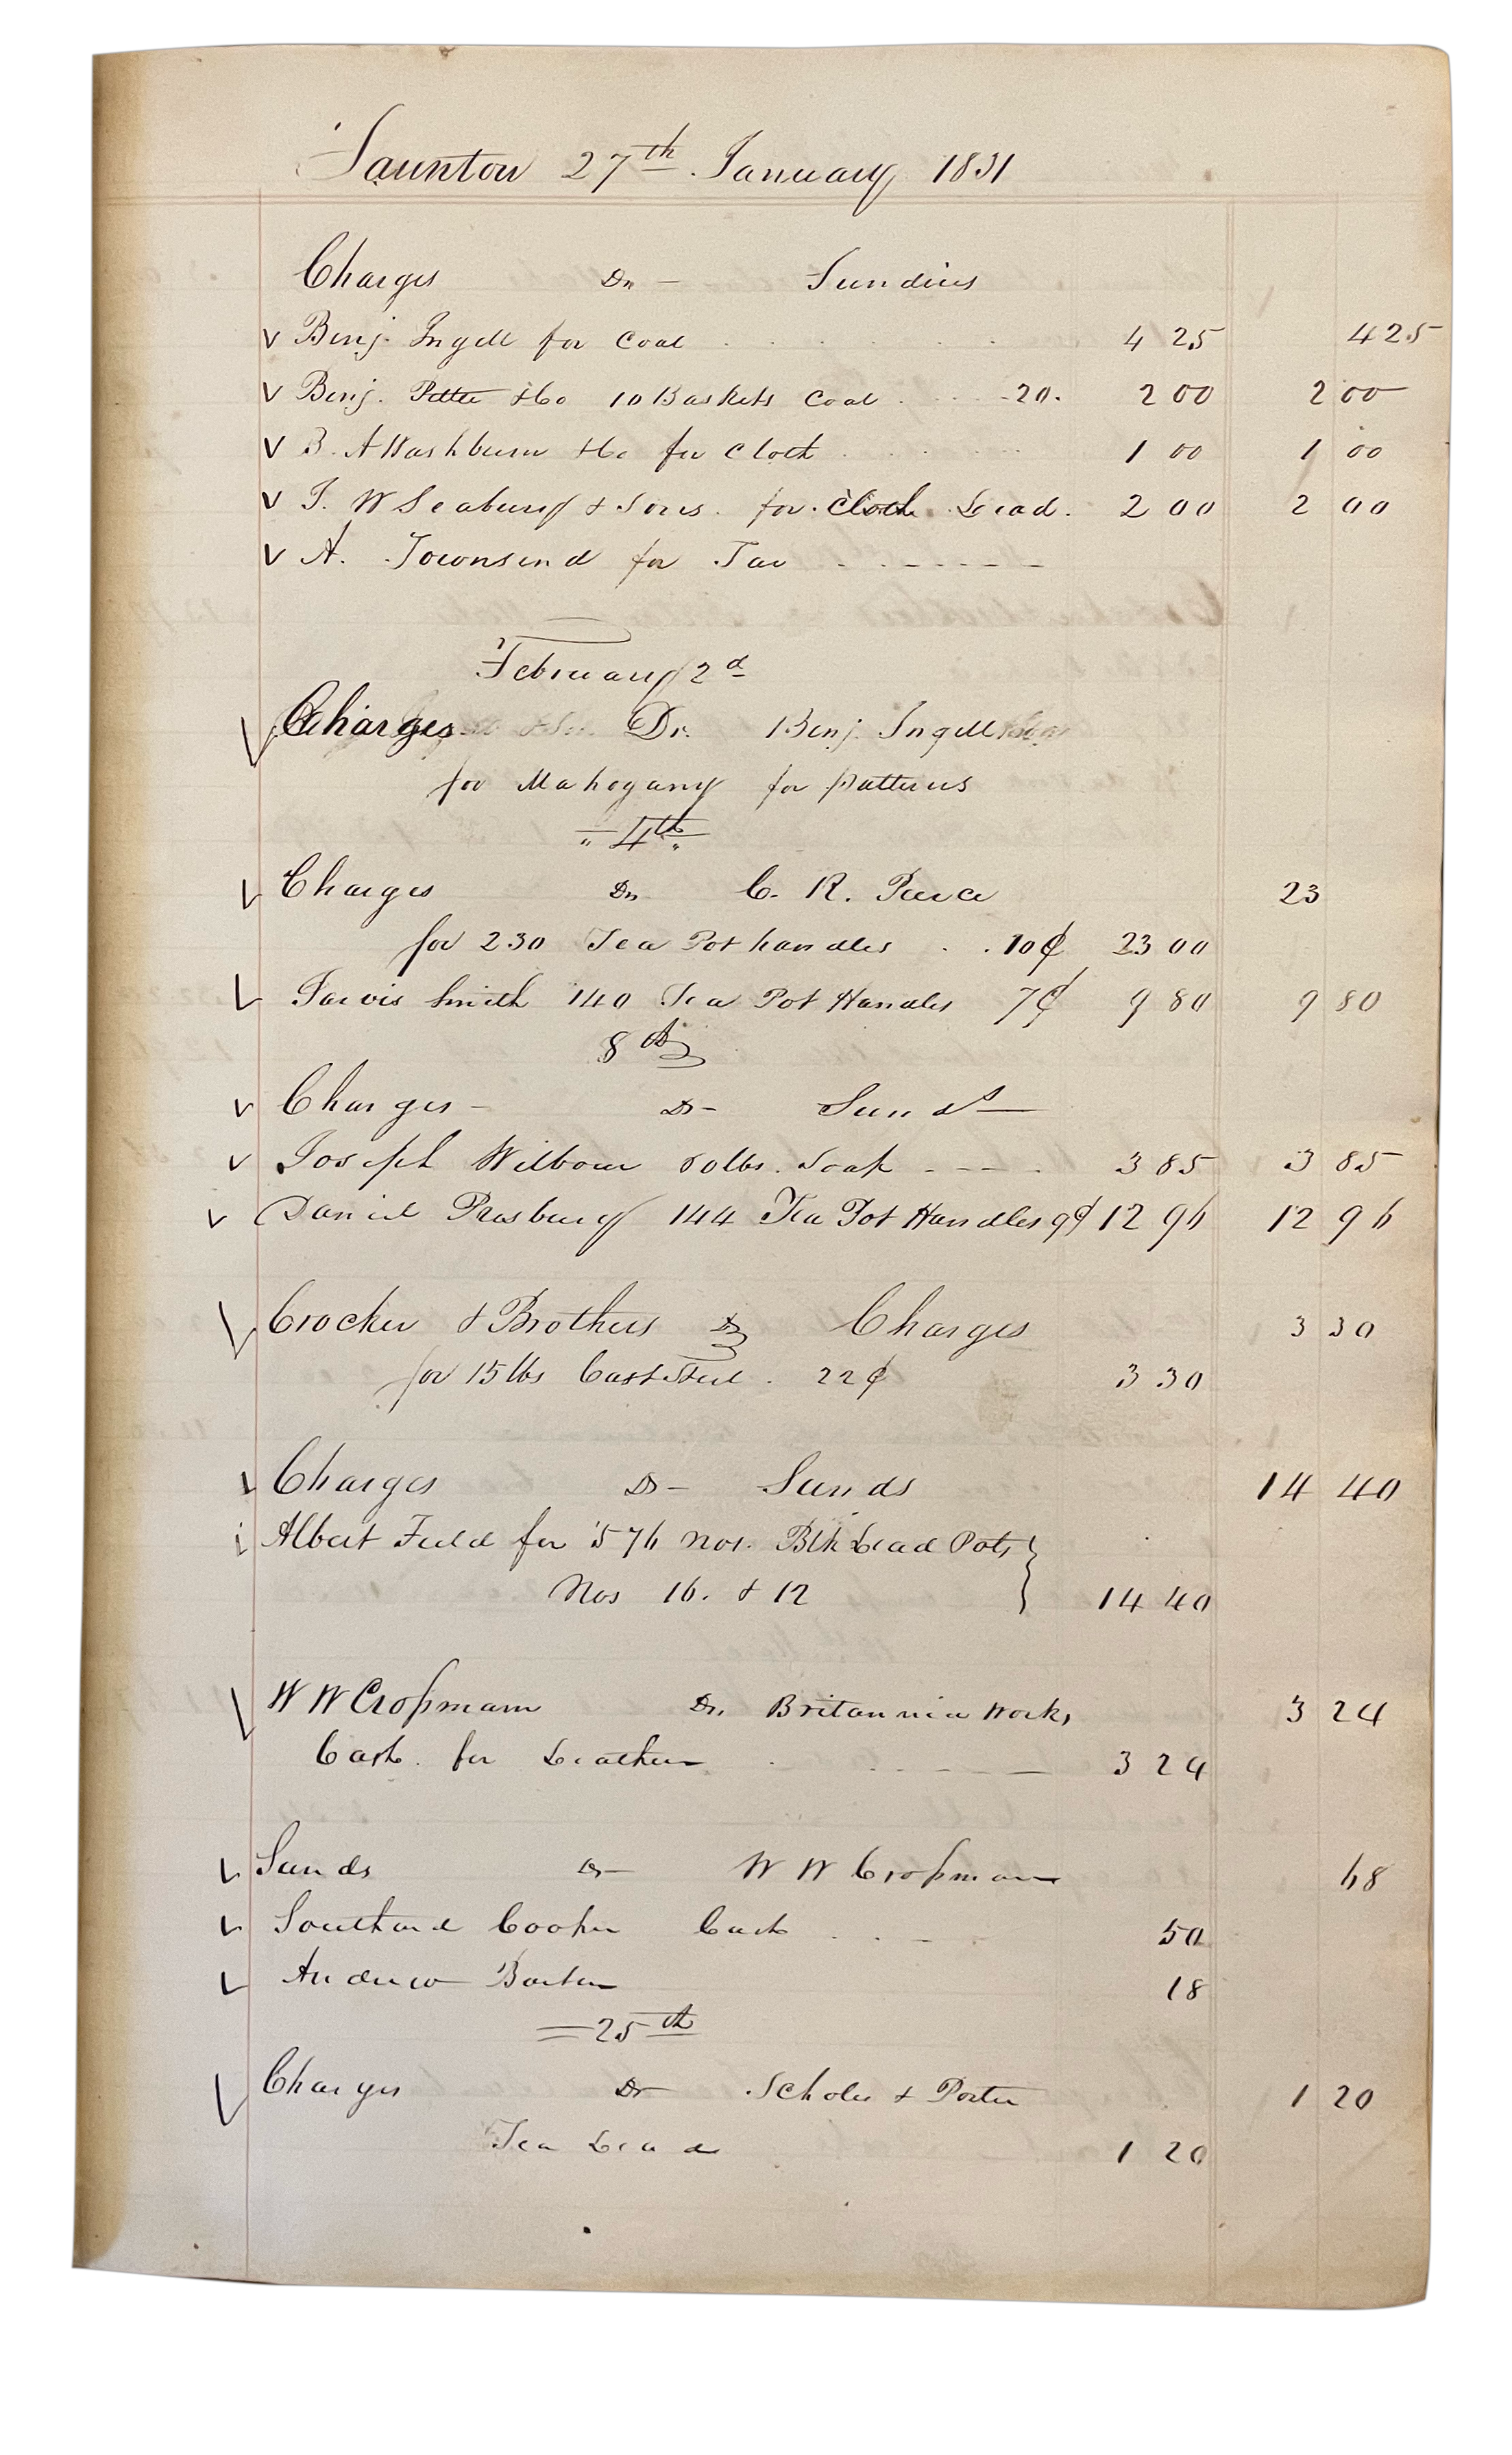 Taunton 27th January 1831
Charges Dr - Sundries
√ Benj. Ingell for Coal 4 25 4 25
√ Benj. &Co 10 Baskets Coal 20. 2 00 2 00
√ B. A Washburn &Co for Cloth 1 00 1 00
√ T. W Seabury & Sons. for. Cloth Lead. 2 00 2 00
√ A. Townsend for Tar
February 2d
√ Charges Dr. Benj. Ingell
for Mahogany for patterns
= 4th =
√ Charges Dr C. R. Peirce 23
for 230 Tea Pot handles 10¢ 23 00
√ Jarvis Smith 140 Tea Pot Handles 7¢ 9 80 9 80
8th
√ Charges - Dr - Sunds
√ Joseph Wilbour lbs. Soap 3 85 3 85
√ Daniel Presbury 144 Tea Pot Handles 9¢ 12 96 12 96
√ Crocker & Brothers Dr Charges 3 30
for 15 lbs Cast Steel. 22¢ 3 30
√ Charges Dr - Sunds 14 40
Albert Field for 576 nos. Blk Lead Pots }
Nos 16. & 12 14 40
√ W W Crossman Dr. Britannia Works 3 24
Cash. for Leather 3 24
√ Sunds Dr W W Crossman 68
√ Southard Cooper Cash 50
√ Andrew 18
= 25th
√ Charges Dr Scholes & Porter 1 20
Tea Lead 1 20